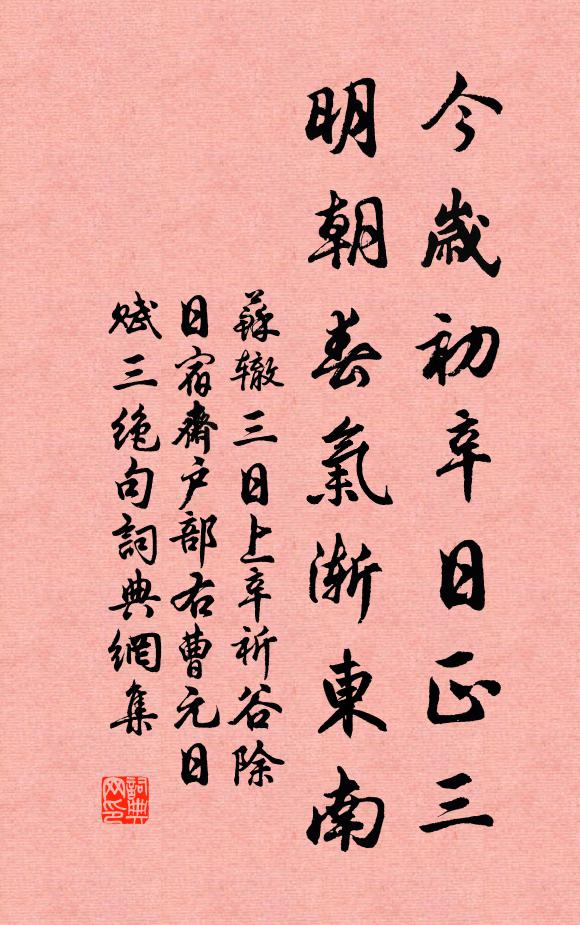 今歲初辛日正三
明朝春氣漸東南
蘇辙三日上辛祈谷除
日宿齋户部右曹元日
賦三绝句詞典網集
詞典
网印